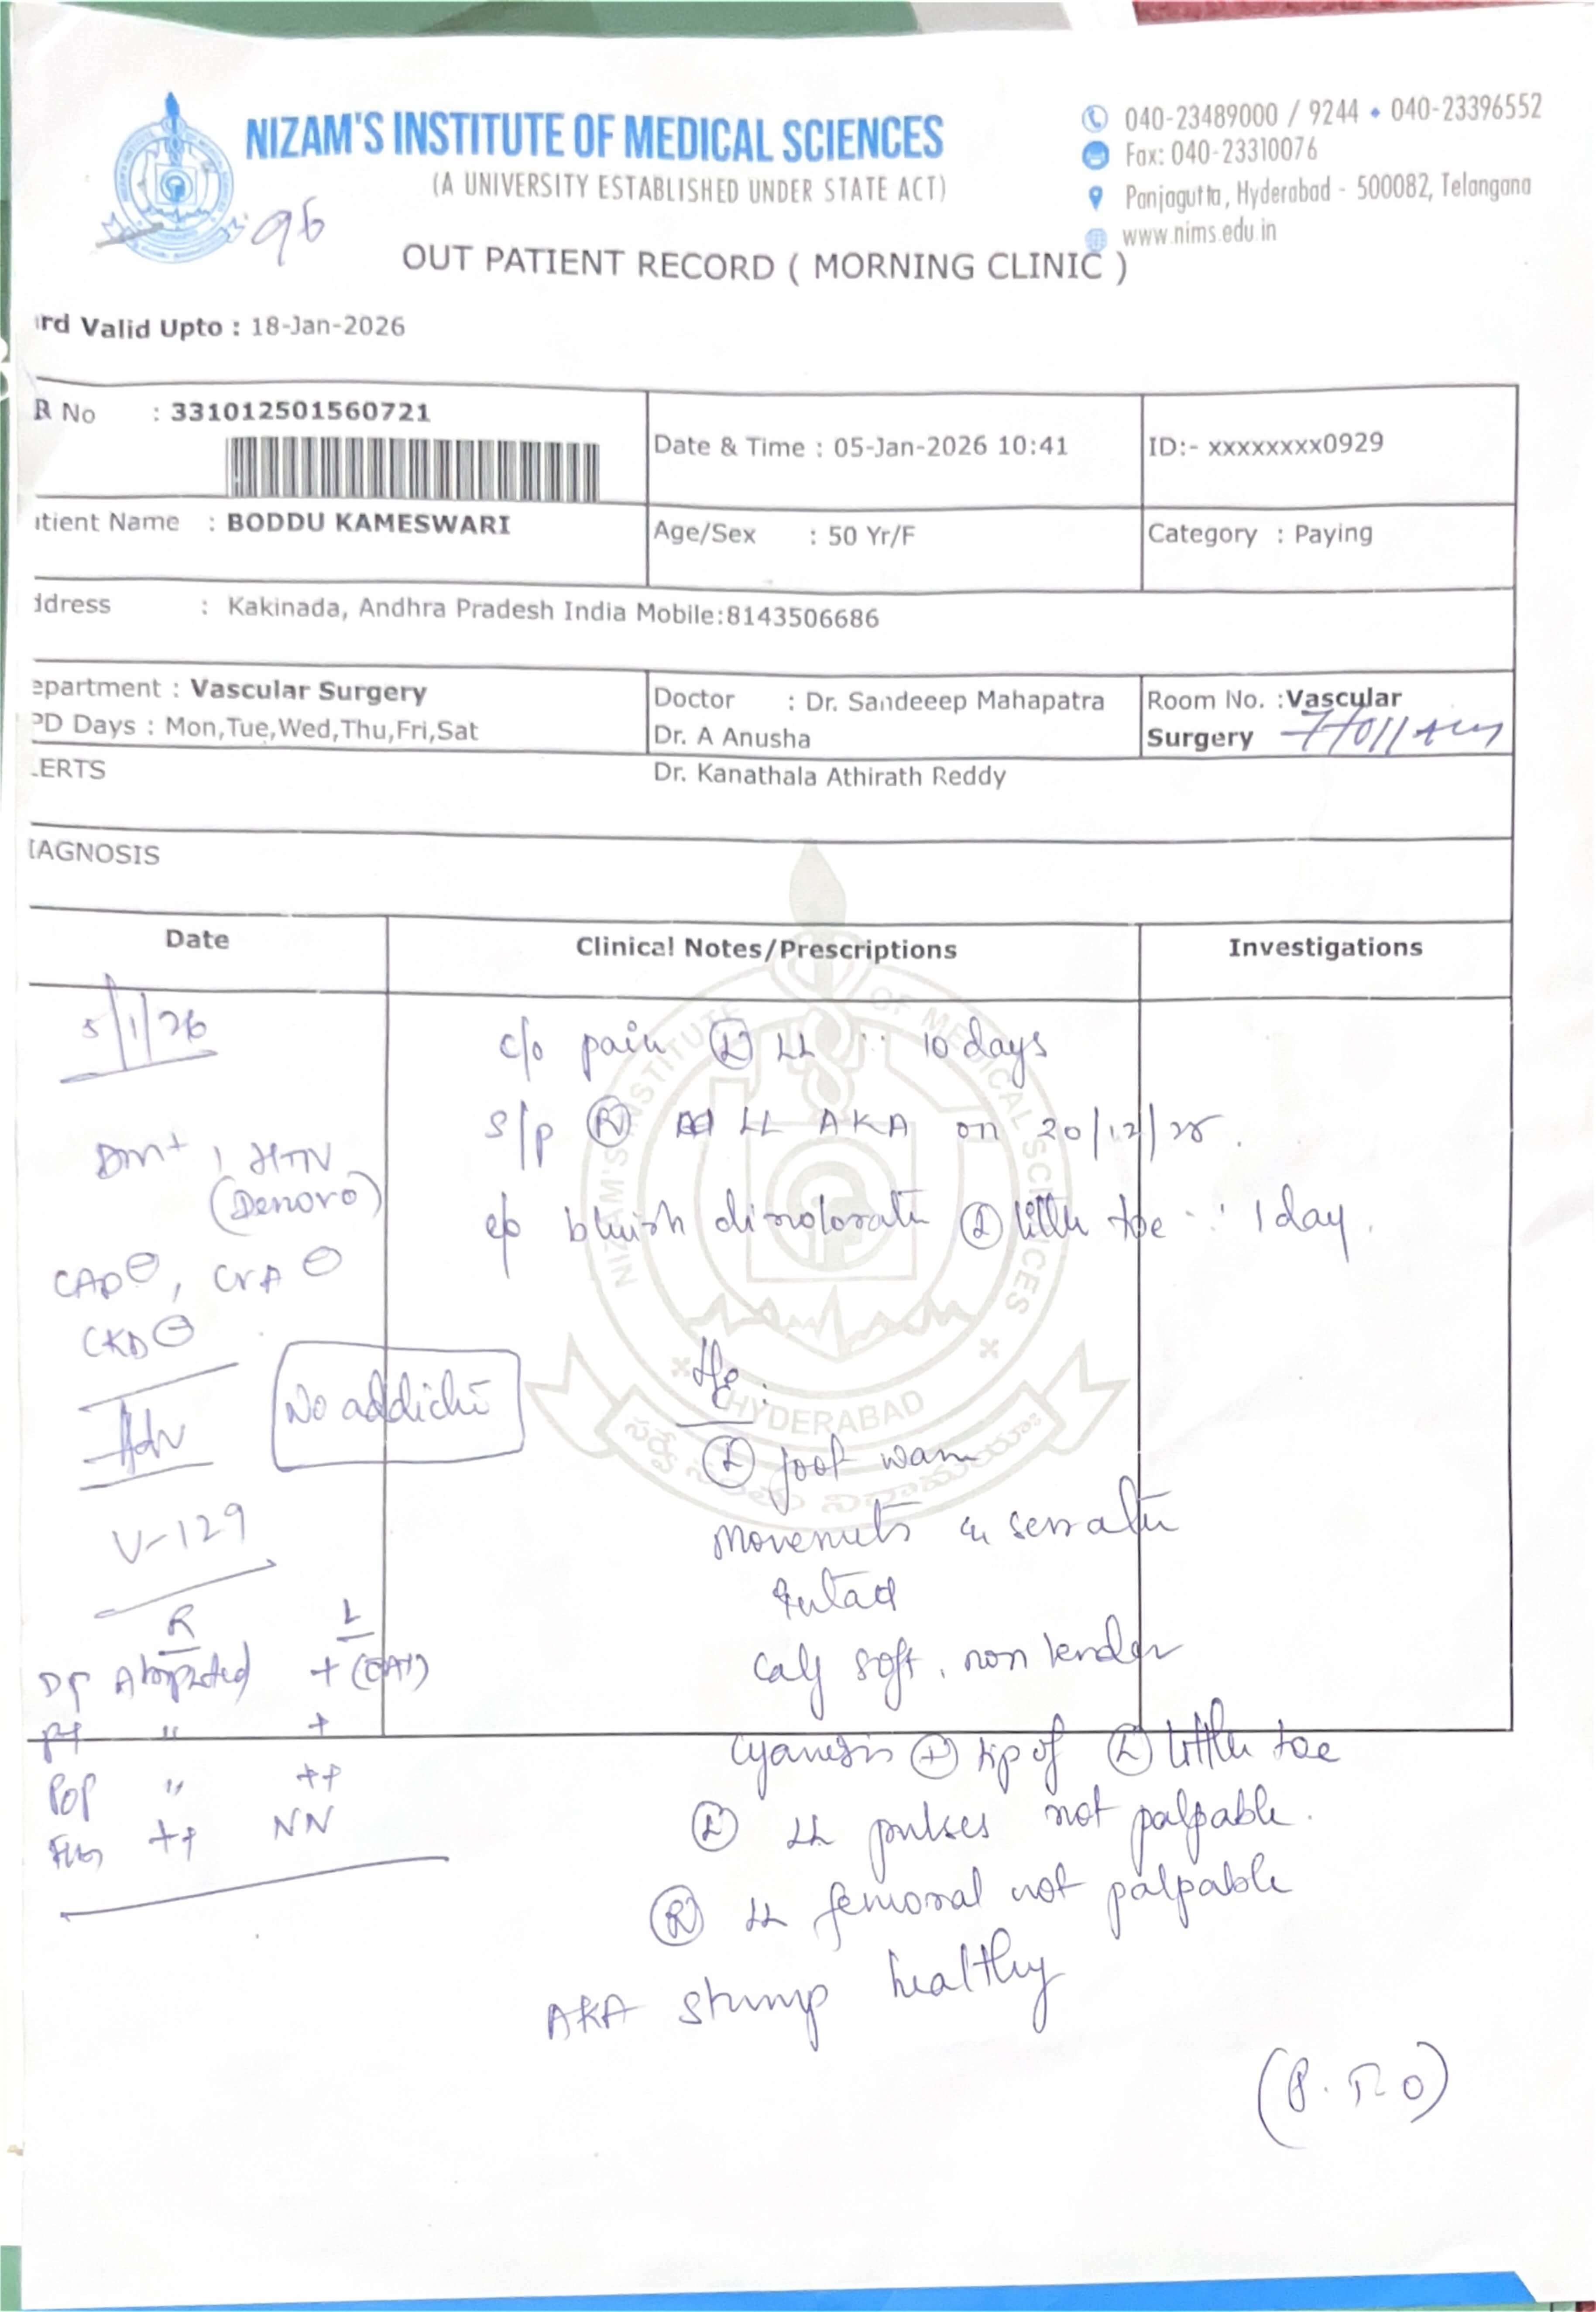 NIZAM'S INSTITUTE OF MEDICAL SCIENCES
(A UNIVERSITY ESTABLISHED UNDER STATE ACT)
040-23489000 / 9244 • 040-23396552
Fax: 040-23310076
Panjagutta, Hyderabad - 500082, Telangana
www.nims.edu.in
96
OUT PATIENT RECORD ( MORNING CLINIC )
rd Valid Upto : 18-Jan-2026
R No : 331012501560721
Date & Time : 05-Jan-2026 10:41
ID:- xxxxxxxx0929
tient Name : BODDU KAMESWARI
Age/Sex : 50 Yr/F
Category : Paying
ddress : Kakinada, Andhra Pradesh India Mobile:8143506686
epartment : Vascular Surgery
PD Days : Mon,Tue,Wed,Thu,Fri,Sat
Doctor : Dr. Sandeeep Mahapatra
Dr. A Anusha
Dr. Kanathala Athirath Reddy
Room No. :Vascular
Surgery
LERTS
IAGNOSIS
Date
Clinical Notes/Prescriptions
Investigations
5/1/26
c/o pain (L) LL ∵ 10 days
S/p (R) LL AKA on 20/12/25.
DM+, HTN
(Denovo)
c/o bluish (L) little toe ∵ 1 day.
CAD⊖, CVA ⊖
CKD⊖
No addicti
Adv
(L) foot warm
V-129
Movements
intact
R L
Calf soft, non tender
DP +
PT " +
Cyanosis (+) tip of (L) little toe
POP " ++
(L) LL pulses not palpable.
++ NN
(R) LL femoral not palpable
AKA stump healthy
(P.T.O)
NIZAM'S INSTITUTE OF MEDICAL SCIENCES
HYDERABAD